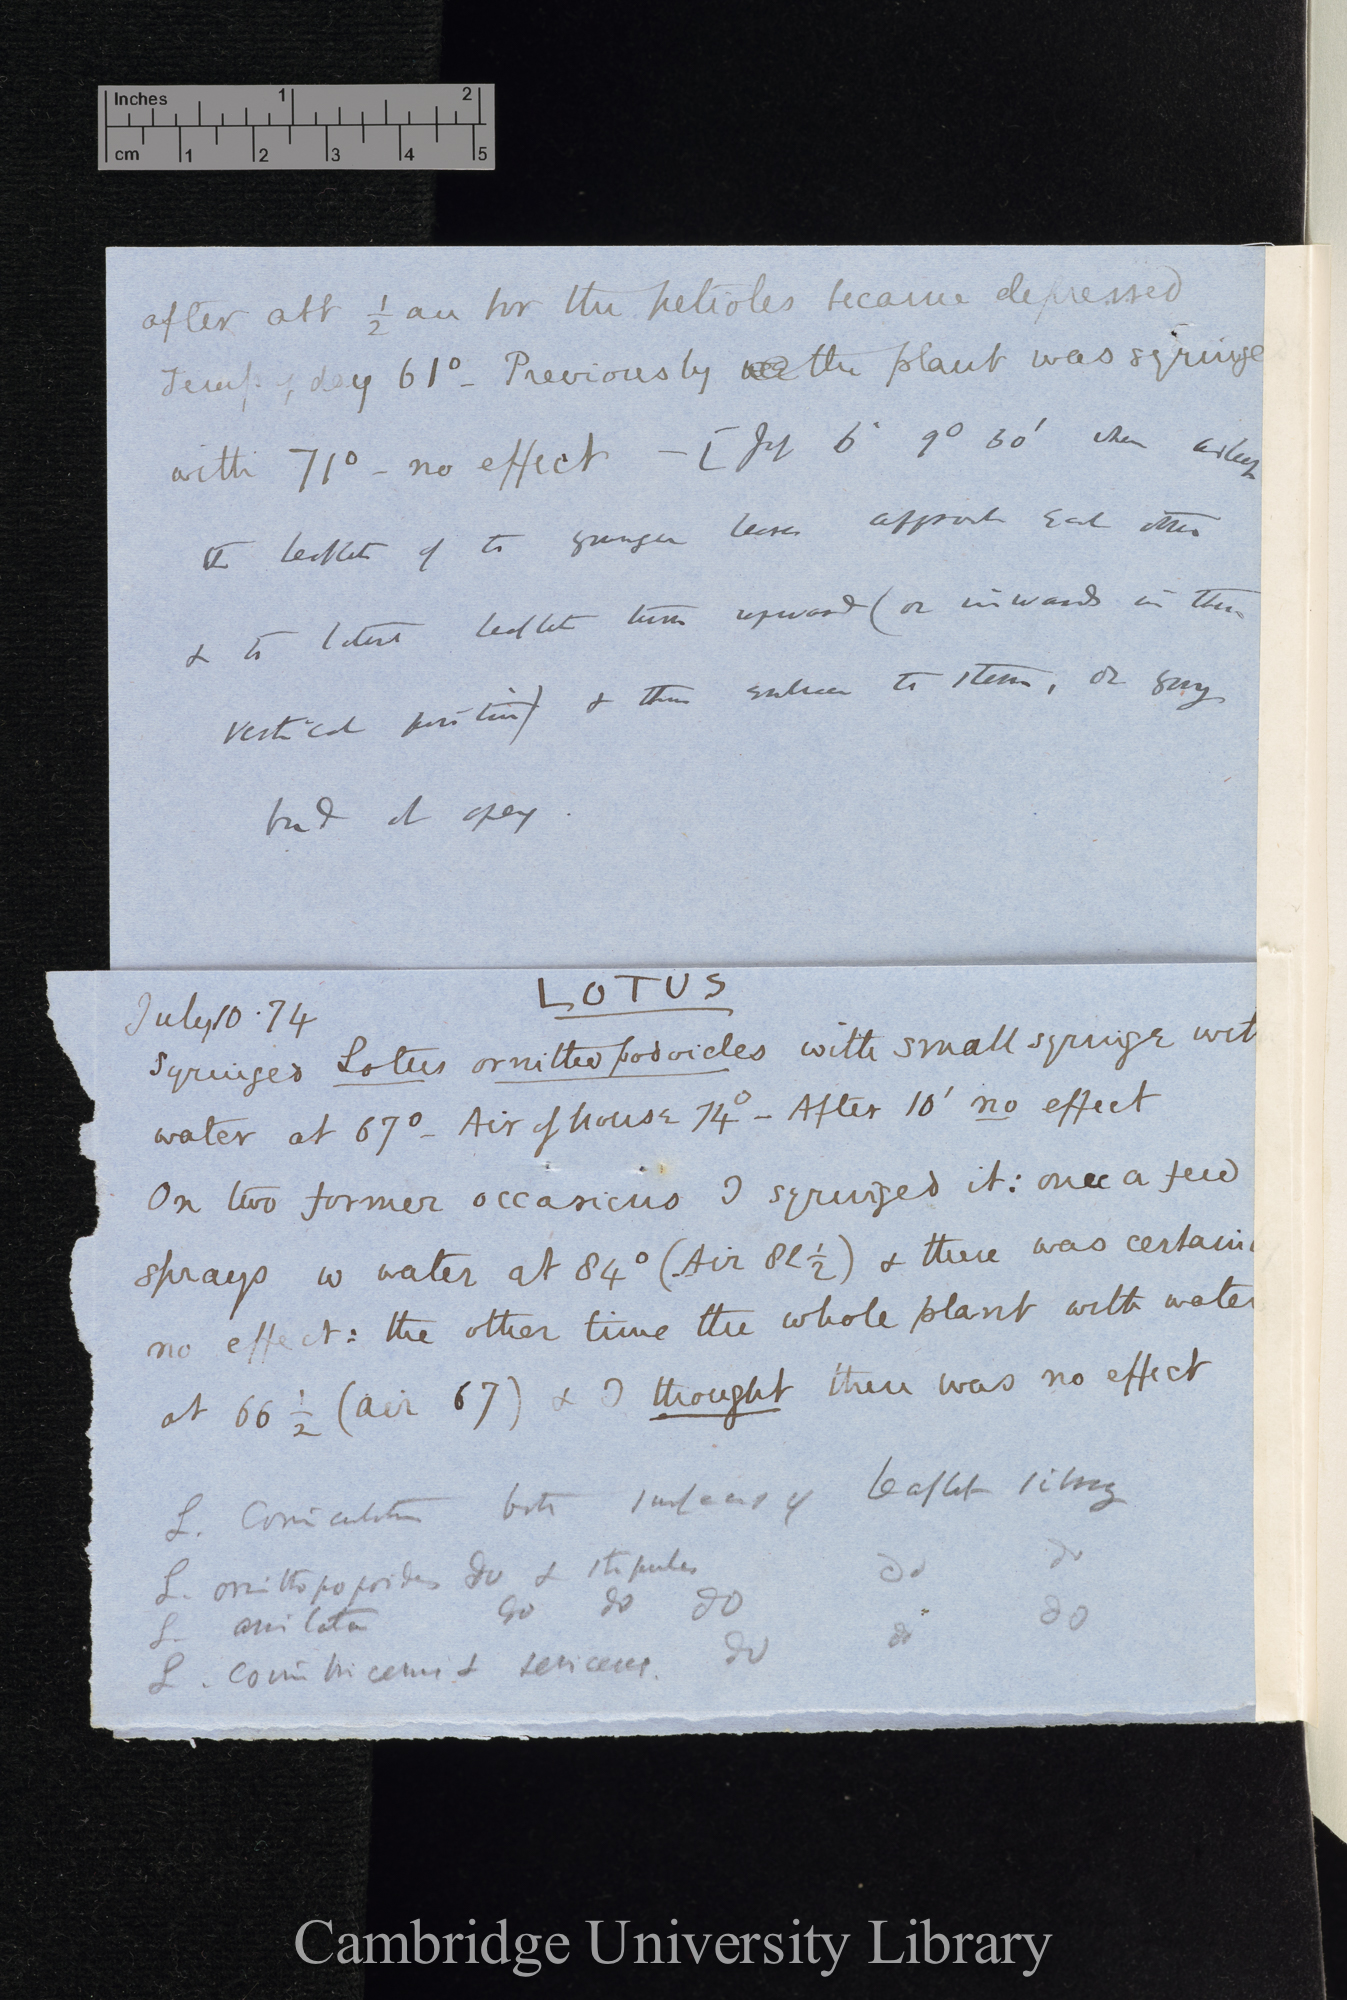 Inches 1 2
cm 1 2 3 4 5
after abt ½ an hr the petioles became depressed
Temp of day 61° - Previously the plant was syringe
with 71° - no effect - [July 6° 9° 30' when asleep
the leaflets of the younger leaves approach each other
& the lateral leaflets turn upwards (or inwards in their
vertical position) & thus embrace the stem, or young
bud at apex.
LOTUS
July 10 · 74
Syringed Lotus ornithopodoides with small syringe wit
water at 67° - Air of house 74° - After 10' no effect
On two former occasions I syringed it: once a few
sprays w water at 84° (Air 82½) & there was certain
no effect: the other time the whole plant with water
at 66½ (air 67) & I thought there was no effect
L. corniculatus both surfaces of leaflets
L. ornithopopoides do & stipules do do
L. do do do do do
L. & sericeus. do
Cambridge University Library